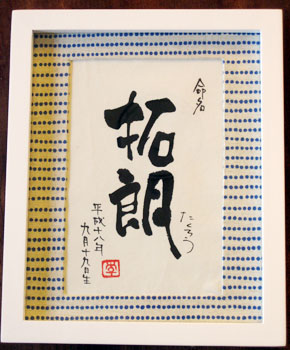 命名
拓朗
たくろう
平成十八年
九月十九日生